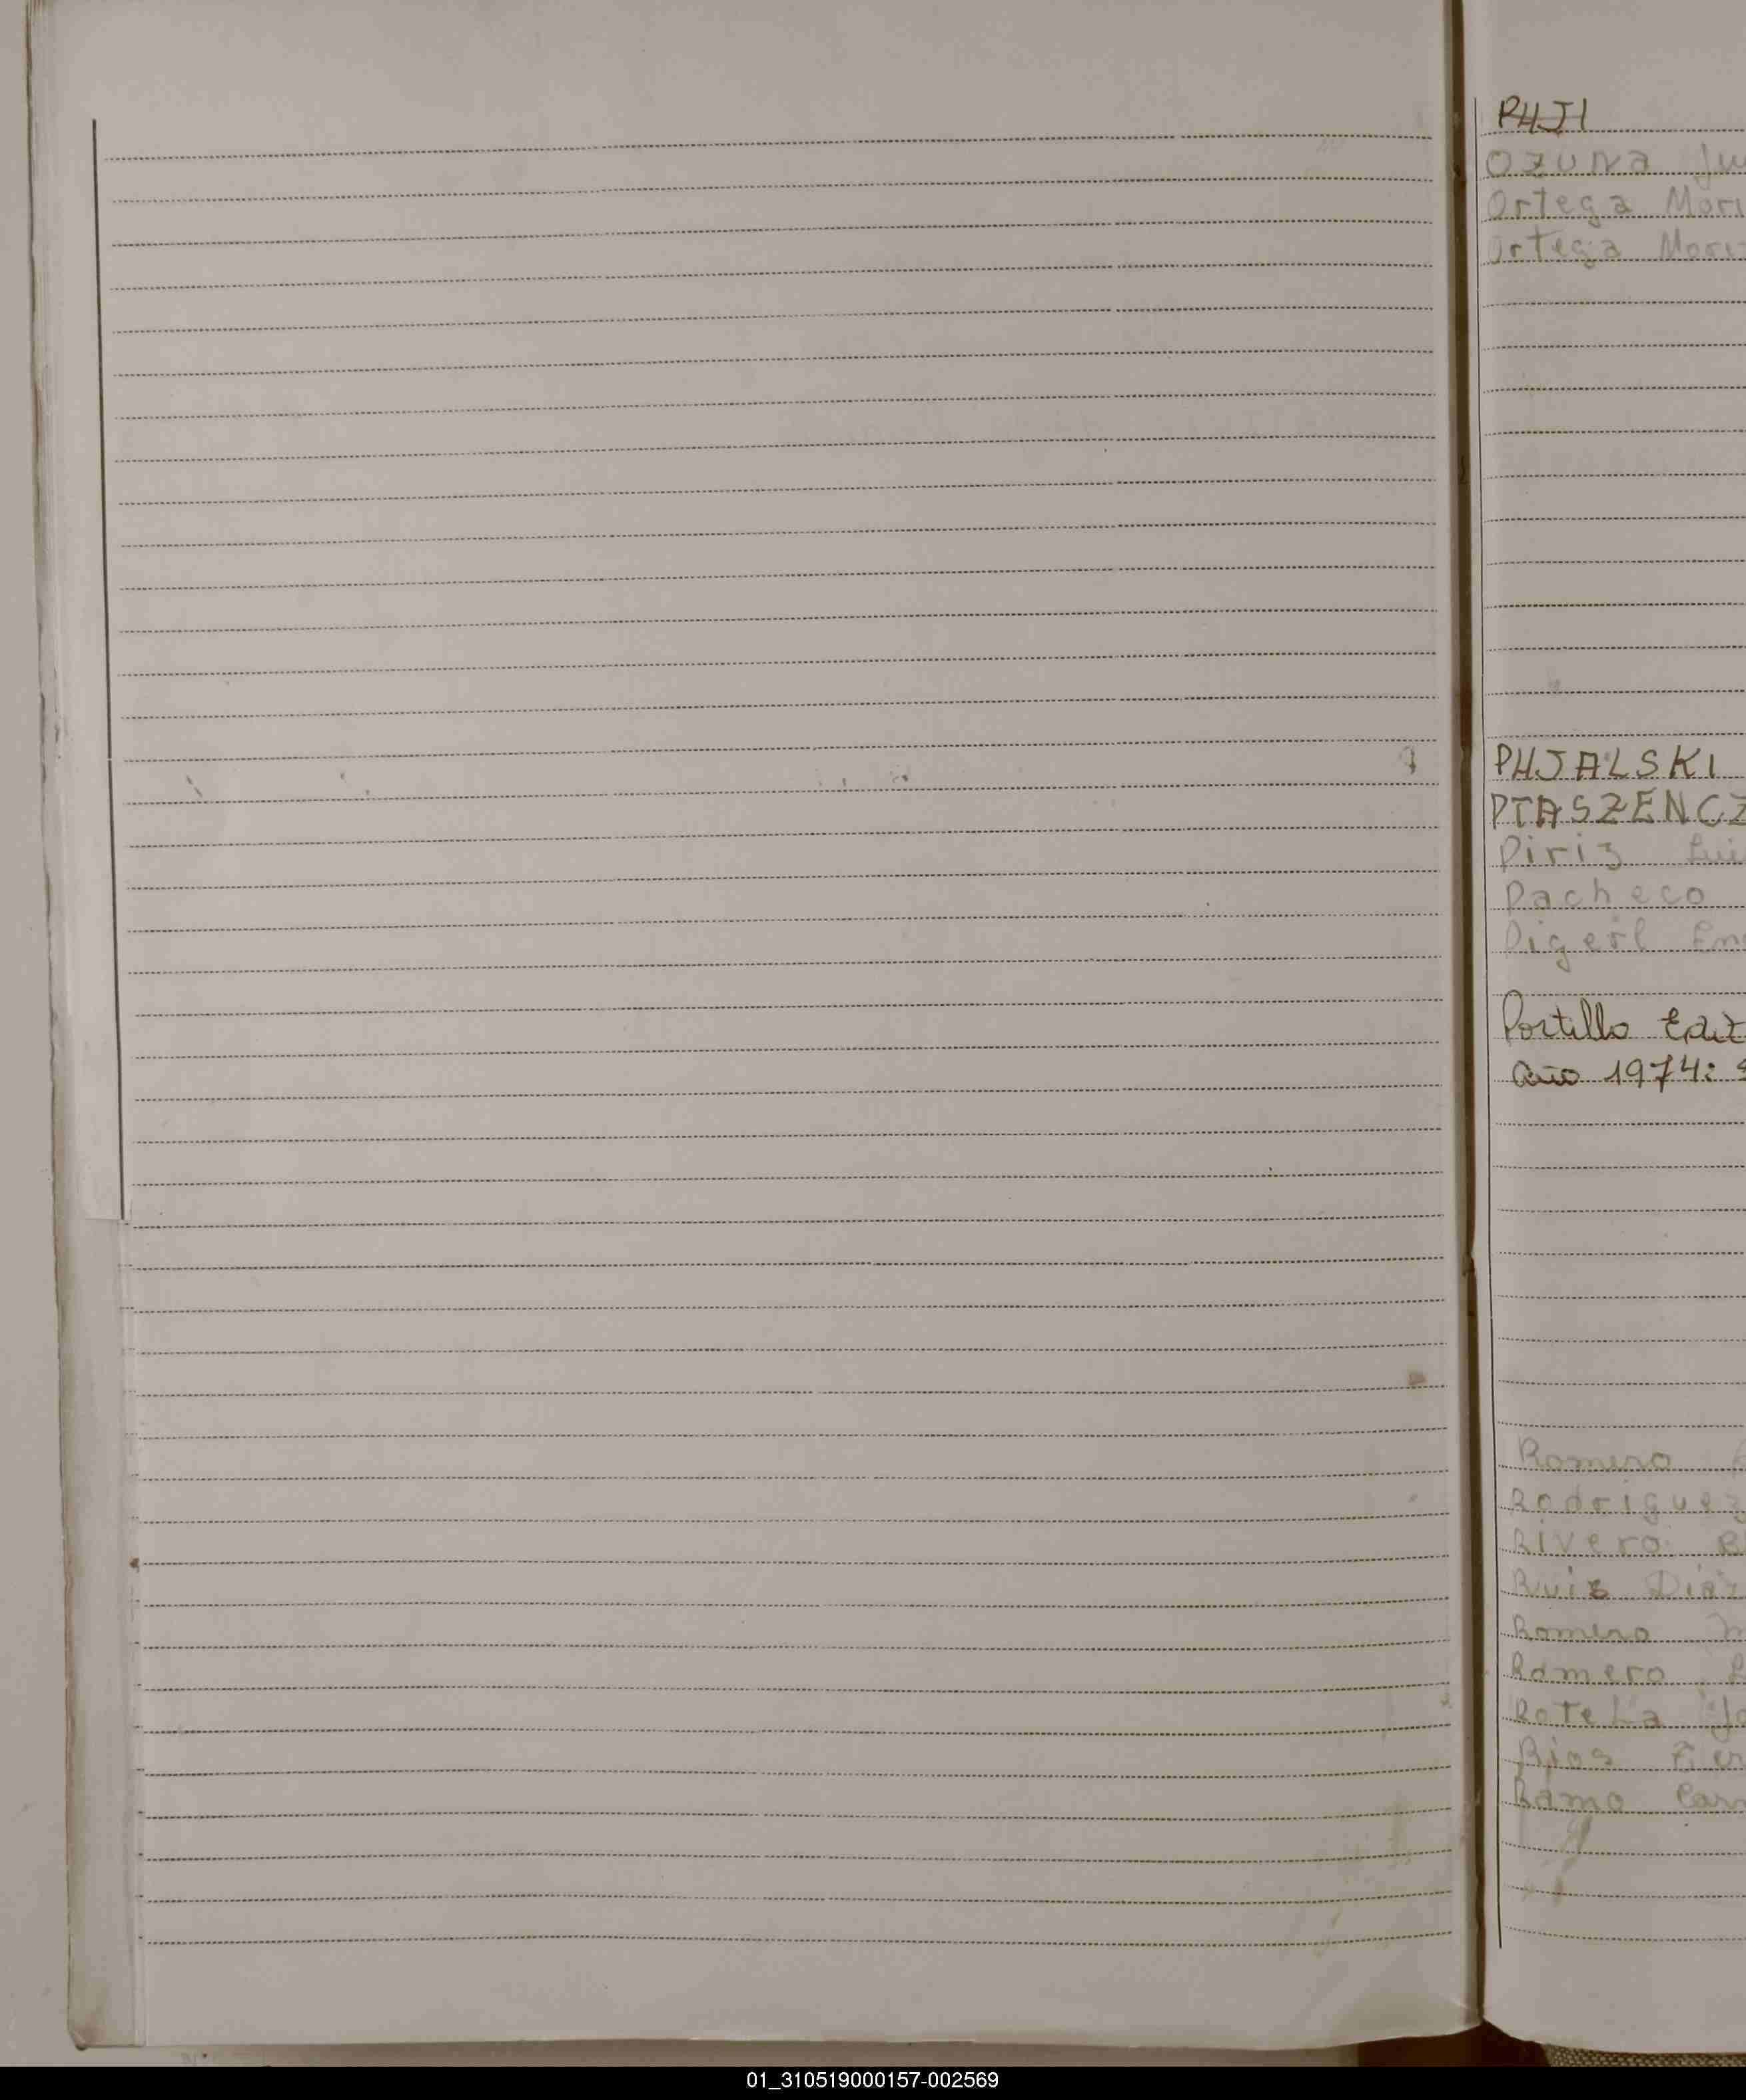 PHJI
Ozuna Ju
Ortega Mari
Ortega Mari
PHJALSKI
PTASZENCZ
Piriz Lui
Pacheco
Pigerl Em
Portillo Edit
Año 1974:
Romero
Rodriguez
Rivero
Ruiz Diaz
Romero
Romero
Rotela Jo
Rios
Ramo Car
01_310519000157-002569